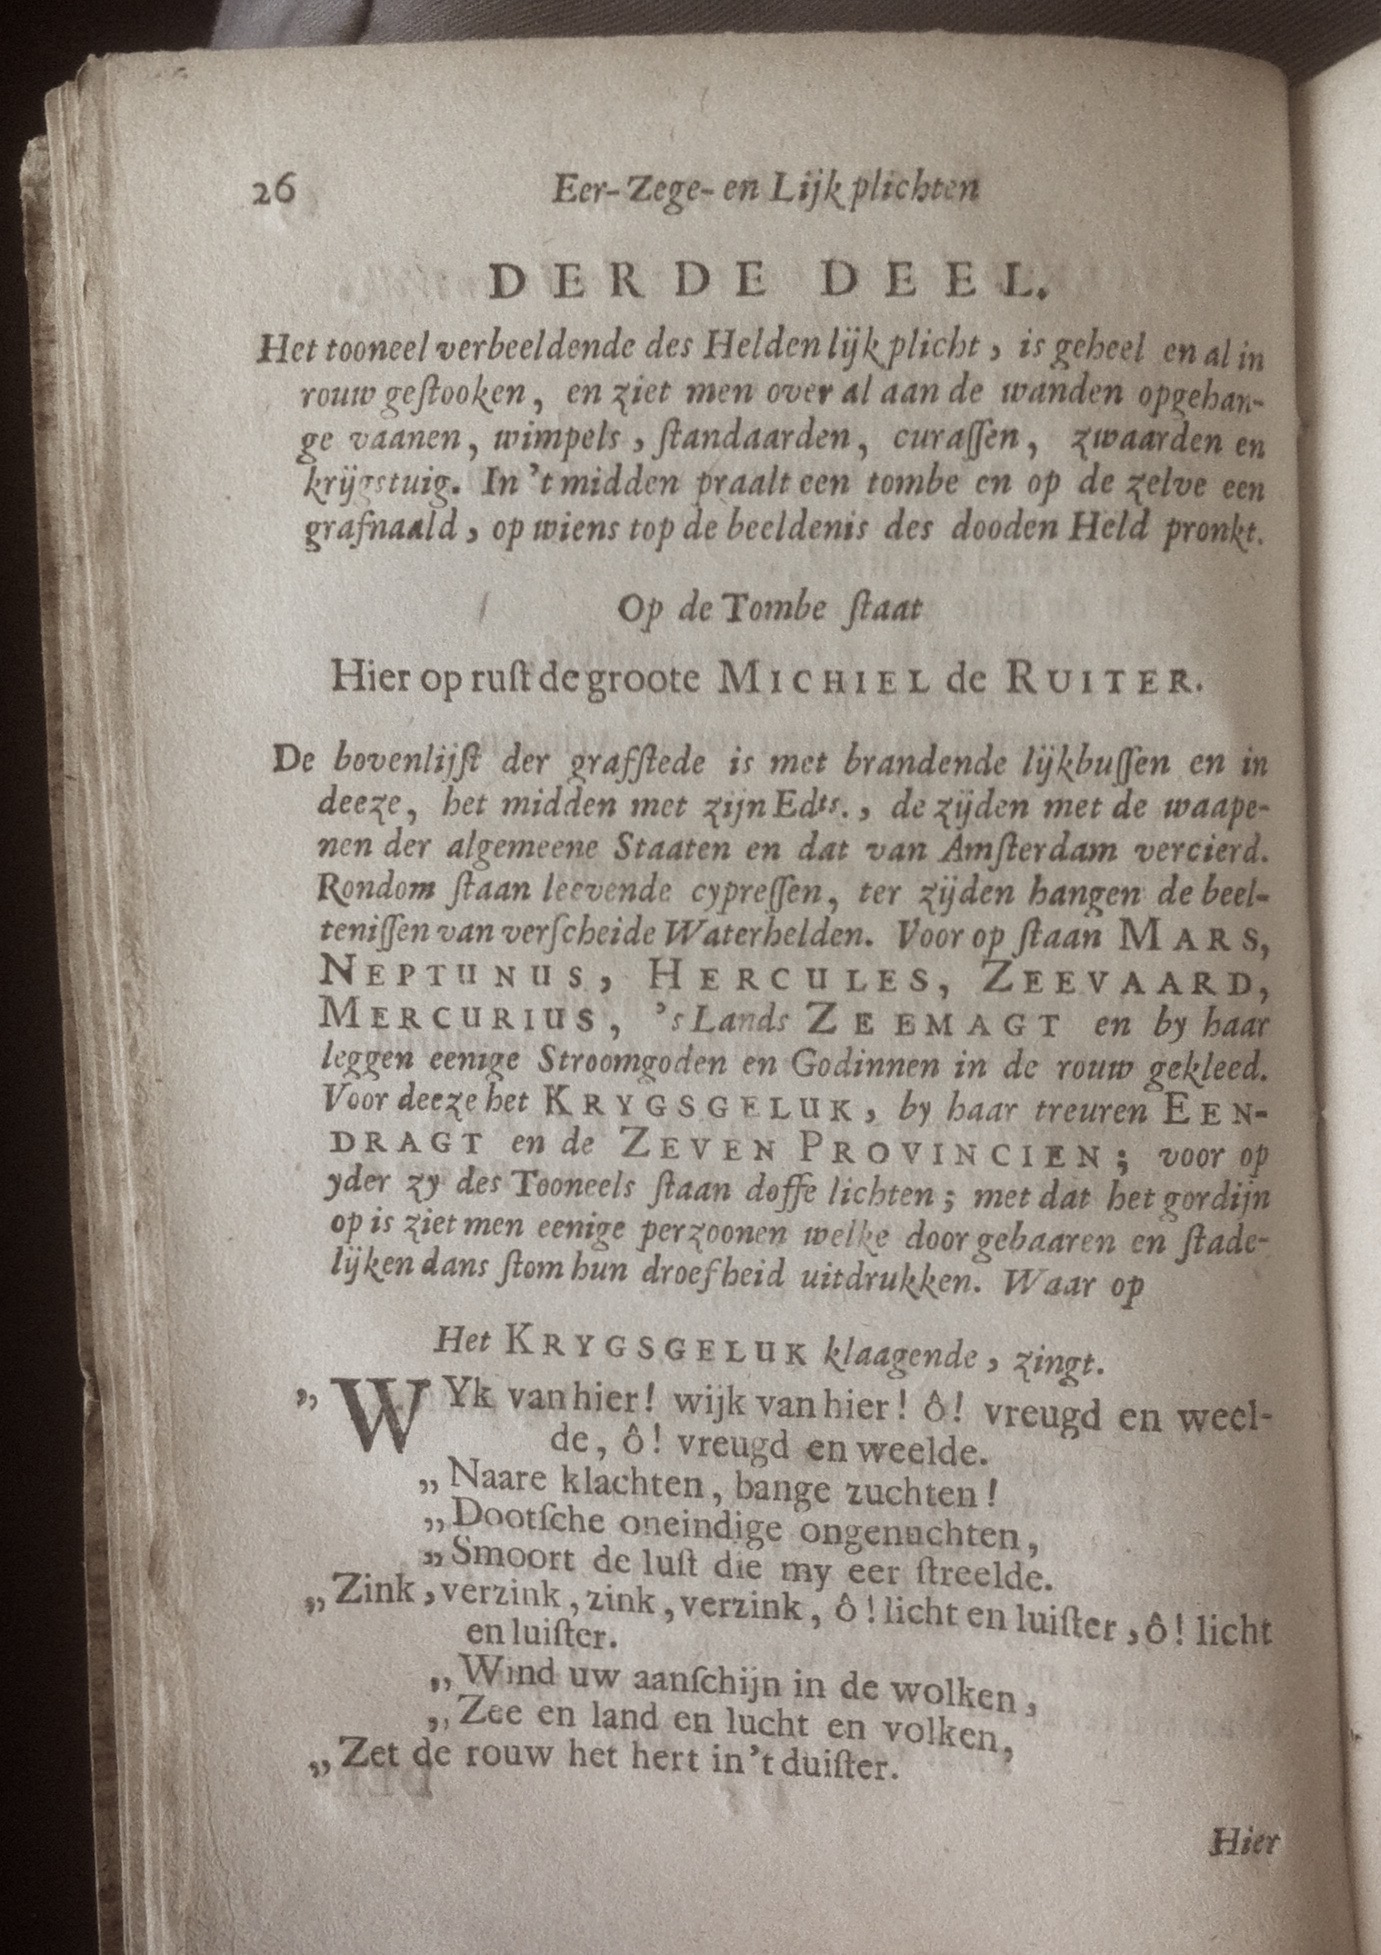 26 Eer-Zege- en Lijkplichten
DERDE DEEL.
Het tooneel verbeeldende des Helden lijkplicht, is geheel en al in
rouw geſtooken, en ziet men over al aan de wanden opgehan-
ge vaanen, wimpels, ſtandaarden, curaſſen, zwaarden en
krijgstuig. In 't midden praalt een tombe en op de zelve een
grafnaald, op wiens top de beeldenis des dooden Held pronkt.
Op de Tombe ſtaat
Hier op ruſt de groote MICHIEL de RUITER.
De bovenlijſt der grafſtede is met brandende lijkbuſſen en in
deeze, het midden met zijn Edts., de zijden met de waape-
nen der algemeene Staaten en dat van Amſterdam vercierd.
Rondom ſtaan leevende cypreſſen, ter zijden hangen de beel-
teniſſen van verſcheide Waterhelden. Voor op ſtaan MARS,
NEPTUNUS, HERCULES, ZEEVAARD,
MERCURIUS, 's Lands ZEEMAGT en by haar
leggen eenige Stroomgoden en Godinnen in de rouw gekleed.
Voor deeze het KRYGSGELUK, by haar treuren EEN-
DRAGT en de ZEVEN PROVINCIEN; voor op
yder zy des Tooneels ſtaan doffe lichten; met dat het gordijn
op is ziet men eenige perzoonen welke door gebaaren en ſtade-
lijken dans ſtom hun droefheid uitdrukken. Waar op
Het KRYGSGELUK klaagende, zingt.
„ WYk van hier! wijk van hier! ô! vreugd en weel-
de, ô! vreugd en weelde.
„ Naare klachten, bange zuchten!
„ Dootſche oneindige ongenuchten,
„ Smoort de luſt die my eer ſtreelde.
„ Zink, verzink, zink, verzink, ô! licht en luiſter, ô! licht
en luiſter.
„ Wind uw aanſchijn in de wolken,
„ Zee en land en lucht en volken,
„ Zet de rouw het hert in 't duiſter.
Hier